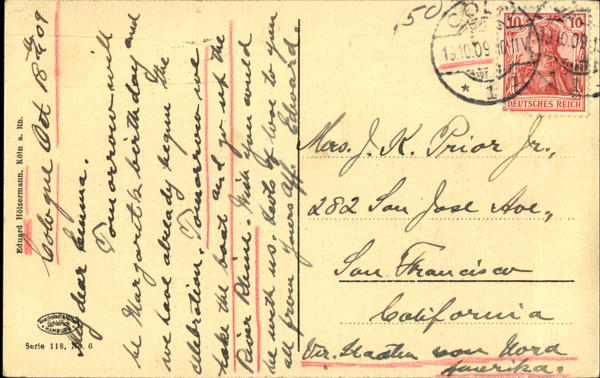 Cologne Oct 18th 09
My dear Emma.
Tomorrow will
be Margaret's birthday and
we have already begun the
celebration. Tomorrow we
take the boat and go up the
River Rhine. Wish you could
be with us. Lots of love to you
all from yours aff. Edward.
Eduard Hölzermann, Köln a. Rh.
Serie 118, No. 6
50
19.10.09
10 10
DEUTSCHES REICH
Mrs. J. K. Prior Jr.,
282 San Jose Ave.,
San Francisco
California
Ver. Staaten von Nord
Amerika.